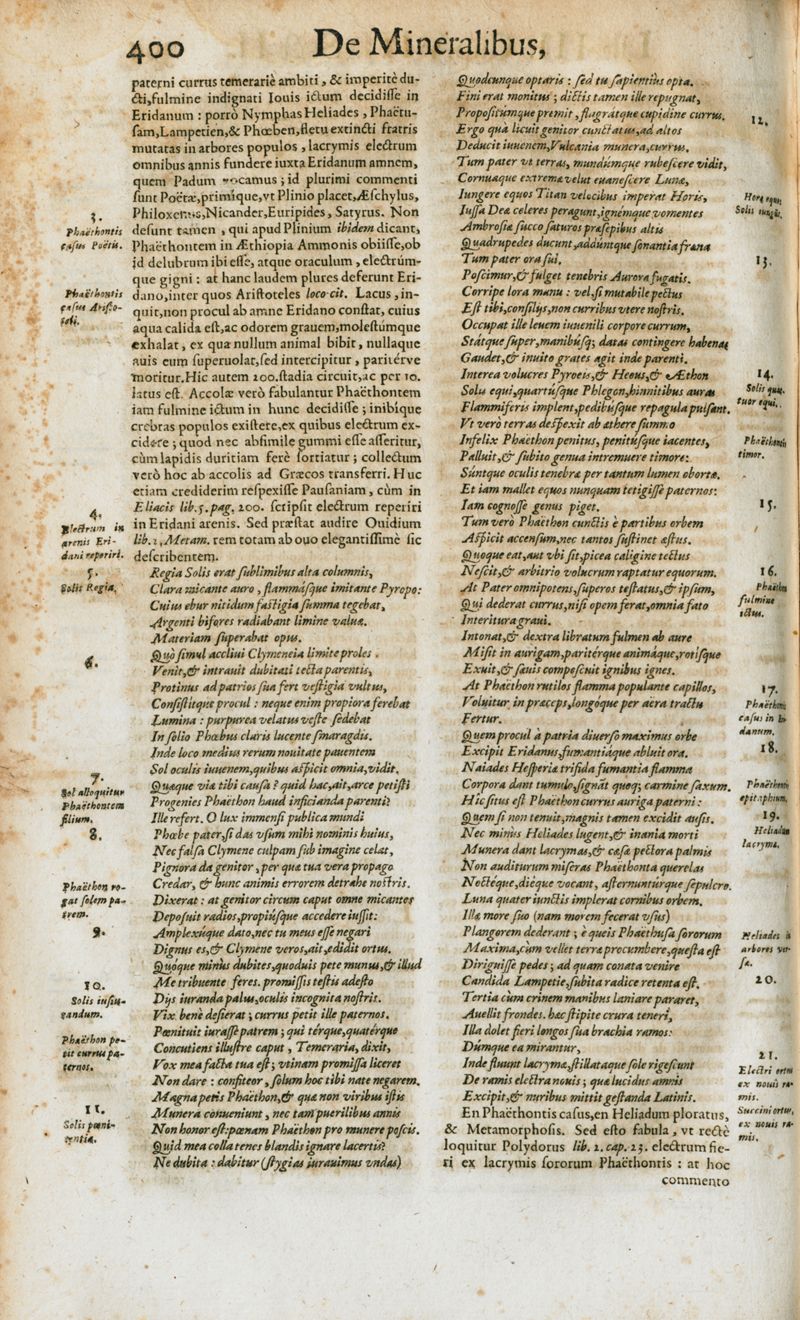 400
De Mineralibus,
paterni currus temerariè ambiti, & imperitè du-
cti, fulmine indignati Iouis ictum decidisse in
Eridanum : porrò Nymphas Heliades, Phaëtu-
sam, Lampetien, & Phœben, fletu extincti fratris
mutatas in arbores populos, lacrymis electrum
omnibus annis fundere iuxta Eridanum amnem,
quem Padum vocamus ; id plurimi commenti
sunt Poëtæ, primique, vt Plinio placet, Æschylus,
Philoxenus, Nicander, Euripides, Satyrus. Non
desunt tamen, qui apud Plinium ibidem dicant,
Phaëthontem in Æthiopia Ammonis obiisse, ob
id delubrum ibi esse, atque oraculum, electrúm-
que gigni : at hanc laudem plures deferunt Eri-
dano, inter quos Aristoteles loco cit. Lacus, in-
quit, non procul ab amne Eridano constat, cuius
aqua calida est, ac odorem grauem, molestúmque
exhalat, ex qua nullum animal bibit, nullaque
auis eum superuolat, sed intercipitur, pariterve
moritur. Hic autem 200. stadia circuit, ac per 10.
latus est. Accolæ verò fabulantur Phaëthontem
iam fulmine ictum in hunc decidisse ; inibique
crebras populos existere, ex quibus electrum ex-
cidere ; quod nec absimile gummi esse asseritur,
cùm lapidis duritiam ferè sortiatur ; collectum
verò hoc ab accolis ad Græcos transferri. Huc
etiam crediderim respexisse Pausaniam, cùm in
Eliacis lib. 5. pag. 200. scripsit electrum reperiri
in Eridani arenis. Sed præstat audire Ouidium
lib. 2. Metam. rem totam ab ouo elegantissimè sic
describentem.
Regia Solis erat sublimibus alta columnis,
Clara micante auro, flammásque imitante Pyropo:
Cuius ebur nitidum fastigia summa tegebat,
Argenti bifores radiabant limine valuæ.
Materiam superabat opus.
Quò simul accliui Clymeneia limite proles.
Venit, & intrauit dubitati tecta parentis,
Protinus ad patrios sua fert vestigia vultus,
Consistitque procul : neque enim propiora ferebat
Lumina : purpurea velatus veste sedebat
In solio Phœbus claris lucente smaragdis.
Inde loco medius rerum nouitate pauentem
Sol oculis iuuenem, quibus aspicit omnia, vidit.
Quæque viæ tibi causa ? quid hac, ait, arce petisti
Progenies Phaëthon haud inficianda parenti?
Ille refert. O lux immensi publica mundi
Phœbe pater, si das vsum mihi nominis huius,
Nec falsa Clymene culpam sub imagine celat,
Pignora da genitor, per quæ tua vera propago
Credar, & hunc animis errorem detrahe nostris.
Dixerat : at genitor circum caput omne micantes
Deposuit radios, propiúsque accedere iussit:
Amplexúque dato, nec tu meus esse negari
Dignus es, & Clymene veros, ait, edidit ortus.
Quóque minùs dubites, quoduis pete munus, & illud
Me tribuente feres. promissis testis adesto
Dijs iuranda palus, oculis incognita nostris.
Vix benè desierat ; currus petit ille paternos.
Pœnituit iurasse patrem ; qui térque, quatérque
Concutiens illustre caput, Temeraria, dixit,
Vox mea facta tua est ; vtinam promissa liceret
Non dare : confiteor, solum hoc tibi nate negarem.
Magna petis Phaëthon, & quæ non viribus istis
Munera conueniunt, nec tam puerilibus annis
Non honor est : pœnam Phaëthon pro munere poscis.
Quid mea colla tenes blandis ignare lacertis?
Ne dubita : dabitur (stygias iurauimus vndas)
3.
Phaëthontis
casus Poëtis.
Phaëthontis
casus Aristo-
teli.
4.
Electrum in
arenis Eri-
dani reperiri.
5.
Solis Regia.
6.
7.
Sol alloquitur
Phaëthontem
filium.
8.
Phaëthon ro-
gat solem pa-
trem.
9.
10.
Solis iusiu-
randum.
Phaëthon pe-
tit currus pa-
ternos.
11.
Solis pœni-
tentia.
Quodcunque optaris : sed tu sapientiùs opta.
Fini erat monitus ; dictis tamen ille repugnat,
Propositúmque premit, flagrátque cupidine currus.
Ergo quà licuit genitor cunctatus, ad altos
Deducit iuuenem, Vulcania munera, currus.
Tum pater vt terras, mundúmque rubescere vidit,
Cornuaque extremæ velut euanescere Lunæ,
Iungere equos Titan velocibus imperat Horis,
Iussa Deæ celeres peragunt, ignémque vomentes
Ambrosiæ succo saturos præsepibus altis
Quadrupedes ducunt, addúntque sonantia fræna
Tum pater ora sui.
Poscimur, & fulget tenebris Aurora fugatis.
Corripe lora manu : vel, si mutabile pectus
Est tibi, consilijs, non curribus vtere nostris.
Occupat ille leuem iuuenili corpore currum,
Státque super, manibúsq; datas contingere habenas
Gaudet, & inuito grates agit inde parenti.
Interea volucres Pyroeis, & Heous, & Æthon
Solis equi, quartúsque Phlegon, hinnitibus auras
Flammiferis implent, pedibúsque repagula pulsant.
Vt verò terras despexit ab æthere summo
Infelix Phaëthon penitus, penitúsque iacentes,
Palluit, & subito genua intremuere timore:
Súntque oculis tenebræ per tantum lumen obortæ.
Et iam mallet equos nunquam tetigisse paternos:
Iam cognosse genus piget.
Tum verò Phaëthon cunctis è partibus orbem
Aspicit accensum, nec tantos sustinet æstus.
Quoque eat, aut vbi sit, picea caligine tectus
Nescit, & arbitrio volucrum raptatur equorum.
At Pater omnipotens, superos testatus, & ipsum,
Qui dederat currus, nisi opem ferat, omnia fato
Interitura graui.
Intonat, & dextra libratum fulmen ab aure
Misit in aurigam, paritérque animáque, rotísque
Exuit, & sæuis compescuit ignibus ignes.
At Phaëthon rutilos flamma populante capillos,
Voluitur in præceps, longóque per aëra tractu
Fertur.
Quem procul à patria diuerso maximus orbe
Excipit Eridanus, fumantiáque abluit ora.
Naiades Hesperiæ trifida fumantia flamma
Corpora dant tumulo, signãt quoq; carmine saxum.
Hic situs est Phaëthon currus auriga paterni :
Quem si non tenuit, magnis tamen excidit ausis.
Nec minùs Heliades lugent, & inania morti
Munera dant lacrymas, & cæsæ pectora palmis
Non auditurum miseras Phaëthonta querelas
Noctéque, diéque vocant, asternuntúrque sepulcro.
Luna quater iunctis implerat cornibus orbem.
Illæ more suo (nam morem fecerat vsus)
Plangorem dederant ; è queis Phaëthusa sororum
Maxima, cùm vellet terra procumbere, questa est
Diriguisse pedes ; ad quam conata venire
Candida Lampetie, subita radice retenta est.
Tertia cùm crinem manibus laniare pararet,
Auellit frondes. hæc stipite crura teneri,
Illa dolet fieri longos sua brachia ramos:
Dúmque ea mirantur,
Inde fluunt lacrymæ, stillataque sole rigescunt
De ramis electra nouis ; quæ lucidus amnis
Excipit, & nuribus mittit gestanda Latinis.
En Phaëthontis casus, en Heliadum ploratus,
& Metamorphosis. Sed esto fabula, vt rectè
loquitur Polydorus lib. 2. cap. 23. electrum fie-
ri ex lacrymis sororum Phaëthontis : at hoc
commento
12.
Horæ equos
Solis
13.
14.
Solis qua-
tuor equi.
Phaëthontis
timor.
15.
16.
Phaëthon
fulmine
ictus.
17.
Phaëthontis
casus in
danum.
18.
Phaëthontis
epitaphium.
19.
Heliadum
lacrymæ.
Heliades in
arbores ver-
sæ.
20.
21.
Electri ortus
ex nouis ra-
mis.
Succini ortus,
ex nouis ra-
mis.